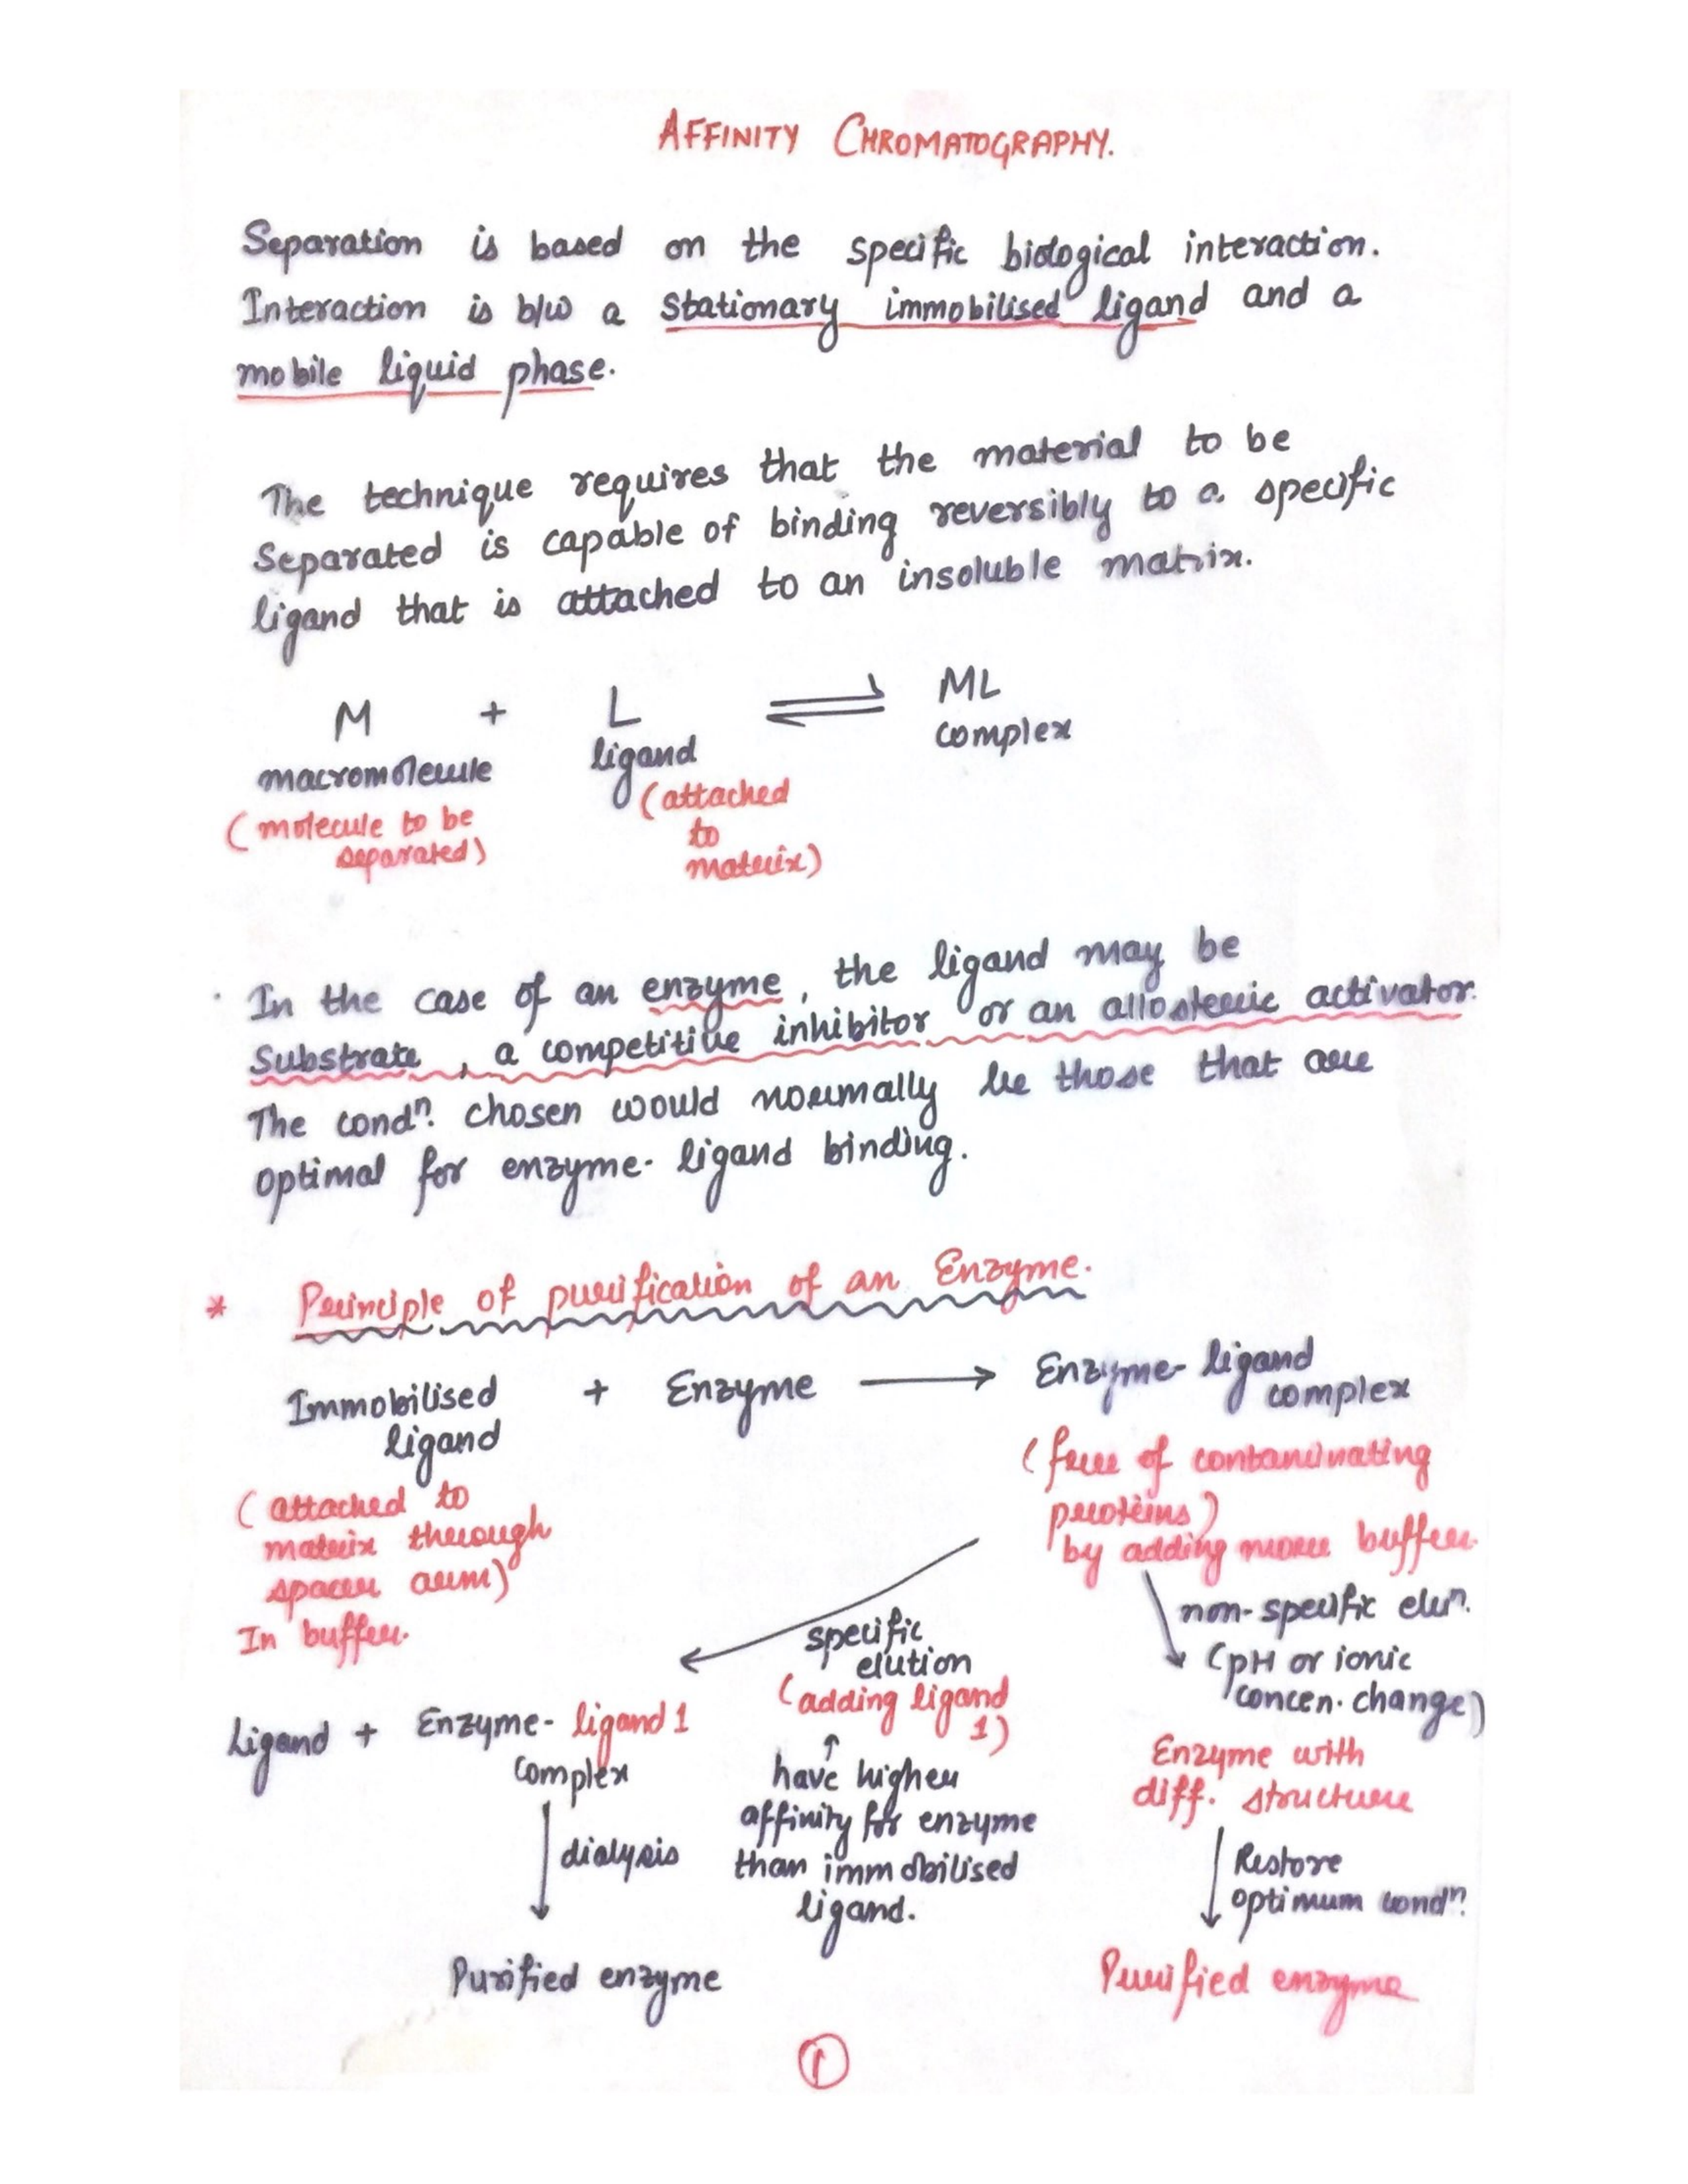 AFFINITY CHROMATOGRAPHY.
Separation is based on the specific biological interaction.
Interaction is b/w a stationary immobilised ligand and a
mobile liquid phase.
The technique requires that the material to be
separated is capable of binding reversibly to a specific
ligand that is attached to an insoluble matrix.
M + L ⇌ ML
macromolecule ligand complex
(molecule to be
separated)
(attached
to
matrix)
In the case of an enzyme, the ligand may be
substrate, a competitive inhibitor or an allosteric activator.
The condⁿ. chosen would normally be those that are
optimal for enzyme-ligand binding.
* Principle of purification of an Enzyme.
Immobilised + Enzyme → Enzyme-ligand
ligand
complex
(attached to
matrix through
spacer arm)
In buffer.
(free of contaminating
proteins)
by adding more buffer.
non-specific eluⁿ.
(pH or ionic
concen. change)
specific
elution
(adding ligand
1)
↑
have higher
affinity for enzyme
than immobilised
ligand.
Ligand + Enzyme-ligand 1
complex
dialysis
Purified enzyme
Enzyme with
diff. structure
Restore
optimum condⁿ.
Purified enzyme
1